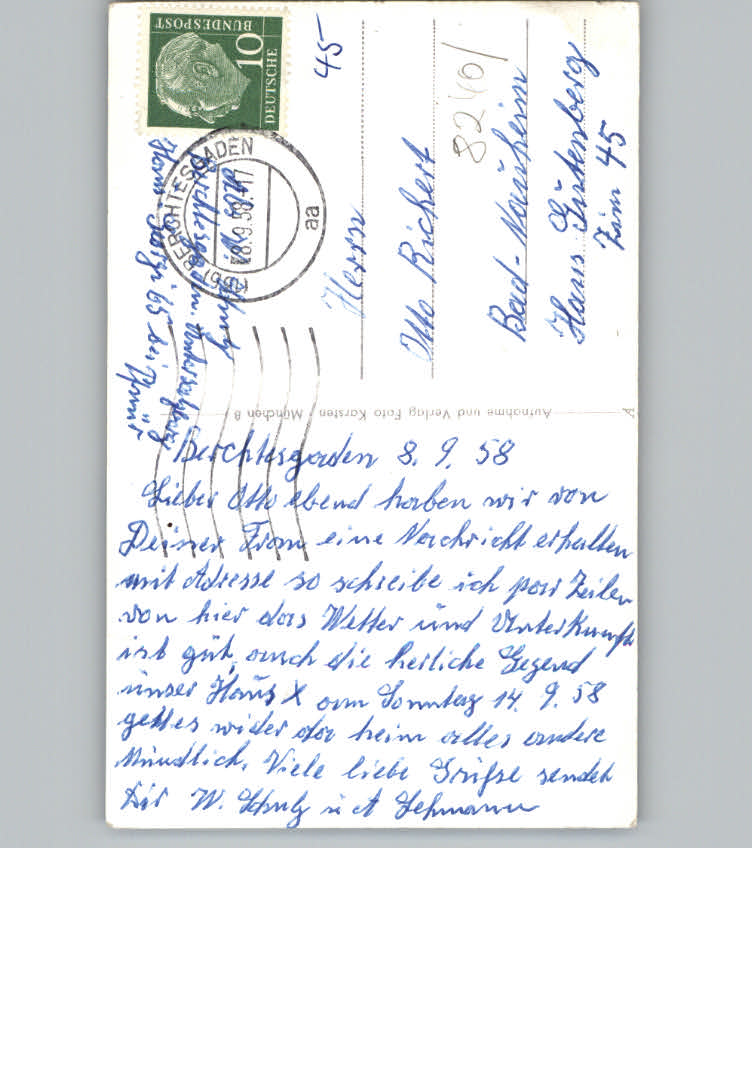 DEUTSCHE
BUNDESPOST
10
45
8240/
BERCHTESGADEN
-8.9.58.-17
aa
Berchtesgaden
Herrn
Otto Richert
Bad-Nauheim
Haus Gutenberg
Zim 45
Aufnahme und Verlag Foto Karsten · München 8
A
Berchtesgaden 8. 9. 58
Lieber Otto ebend haben wir von
Deiner Firm eine Nachricht erhalten
mit Adresse so schreibe ich par Zeilen
von hier das Wetter und Unterkunft
ist gut, auch die herliche Gegend
unser Haus X am Sonntag 14. 9. 58
gehtes wider da heim alles andere
Mündlich. Viele liebe Grüsse sendet
Dir W. Schulz u A Lehmann